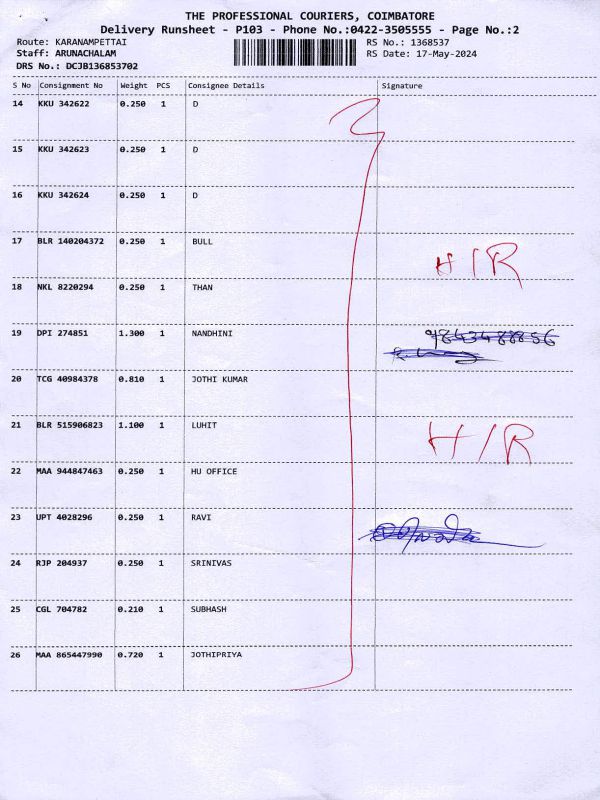 THE PROFESSIONAL COURIERS, COIMBATORE
Delivery Runsheet - P103 - Phone No.:0422-3505555 - Page No.:2
Route: KARANAMPETTAI RS No.: 1368537
Staff: ARUNACHALAM RS Date: 17-May-2024
DRS No.: DCJB136853702
S No Consignment No Weight PCS Consignee Details Signature
14 KKU 342622 0.250 1 D
15 KKU 342623 0.250 1 D
16 KKU 342624 0.250 1 D
17 BLR 140204372 0.250 1 BULL H/R
18 NKL 8220294 0.250 1 THAN
19 DPI 274851 1.300 1 NANDHINI
20 TCG 40984378 0.810 1 JOTHI KUMAR
21 BLR 515906823 1.100 1 LUHIT H/R
22 MAA 944847463 0.250 1 HU OFFICE
23 UPT 4028296 0.250 1 RAVI
24 RJP 204937 0.250 1 SRINIVAS
25 CGL 704782 0.210 1 SUBHASH
26 MAA 865447990 0.720 1 JOTHIPRIYA